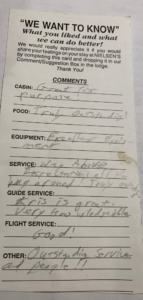 "WE WANT TO KNOW"
What you liked and what
we can do better!
We would really appreciate it if you would
share your feelings on your stay at NIELSEN'S
by completing this card and dropping it in our
Comment/Suggestion Box in the lodge.
Thank You!
COMMENTS
CABIN: Great for
purpose
FOOD: Truly outstanding
EQUIPMENT: Excellent
SERVICE: Way Above
GUIDE SERVICE:
Kris is great.
Very knowledgeable
FLIGHT SERVICE:
Good!
OTHER: Outstanding Service
and people!!